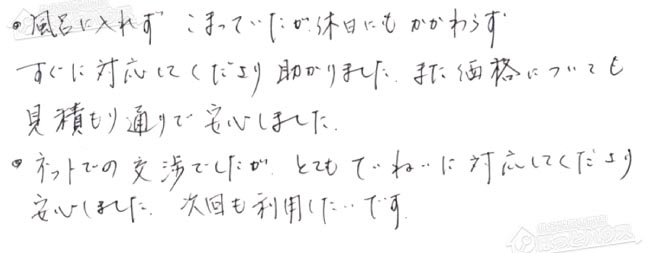 ・風呂に入れず こまっていたが、休日にもかかわらず
すぐに対応してくださり助かりました。また価格についても
見積もり通りで安心しました。
・ネットでの交渉でしたが、とてもていねいに対応してくださり
安心しました。次回も利用したいです。